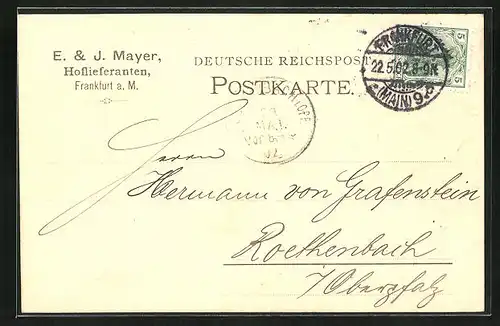 E. & J. Mayer,
Hoflieferanten,
Frankfurt a. M.
DEUTSCHE REICHSPOST
POSTKARTE.
FRANKFURT
22.5.02.8-9N
(MAIN)9
5
5
MAI
02
Herrn
Hermann von Grafenstein
Roethenbach
/Oberpfalz